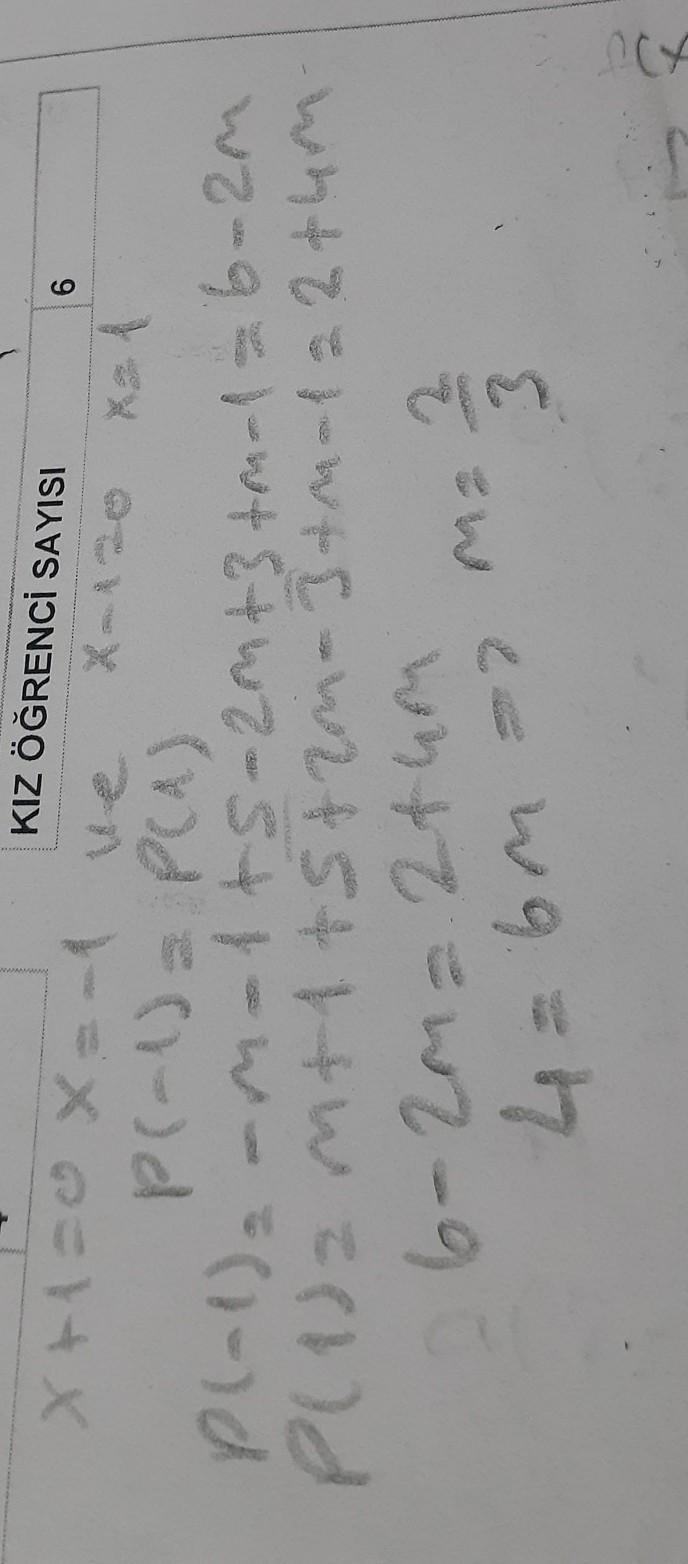 KIZ ÖĞRENCİ SAYISI 6
x+1=0 x=-1 ve x-1=0 x=1
P(-1) = P(1)
P(-1) = -m-1+5-2m+3+m-1 = 6-2m
P(1) = m+1+5+2m-3+m-1 = 2+4m
6-2m = 2+4m
4 = 6m => m = 2/3